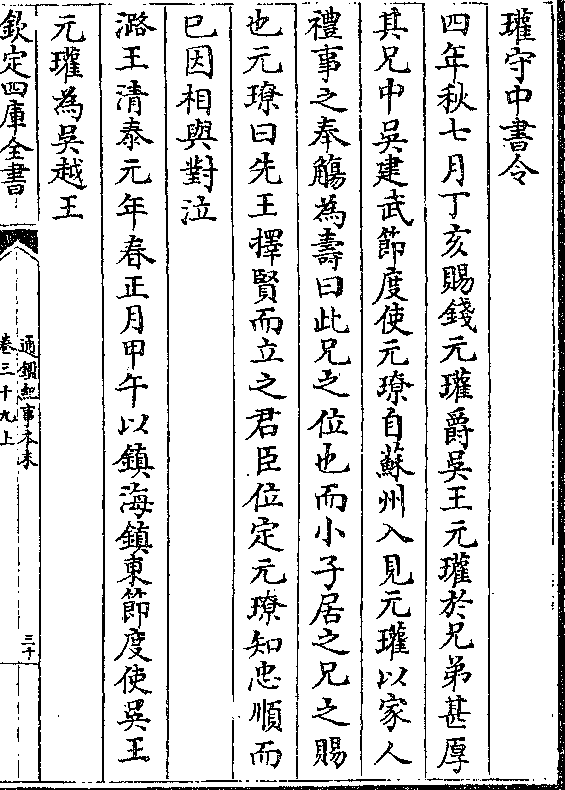 瓘守中書令
四年秋七月丁亥賜錢元瓘爵吳王元瓘於兄弟甚厚
其兄中吳建武節度使元璙自蘇州入見元瓘以家人
禮事之奉觴為壽曰此兄之位也而小子居之兄之賜
也元璙曰先王擇賢而立之君臣位定元璙知忠順而
已因相與對泣
潞王清泰元年春正月甲午以鎮海鎮東節度使吳王
元瓘為吳越王
欽定四庫全書
通鑑紀事本末
卷三十九上
三十